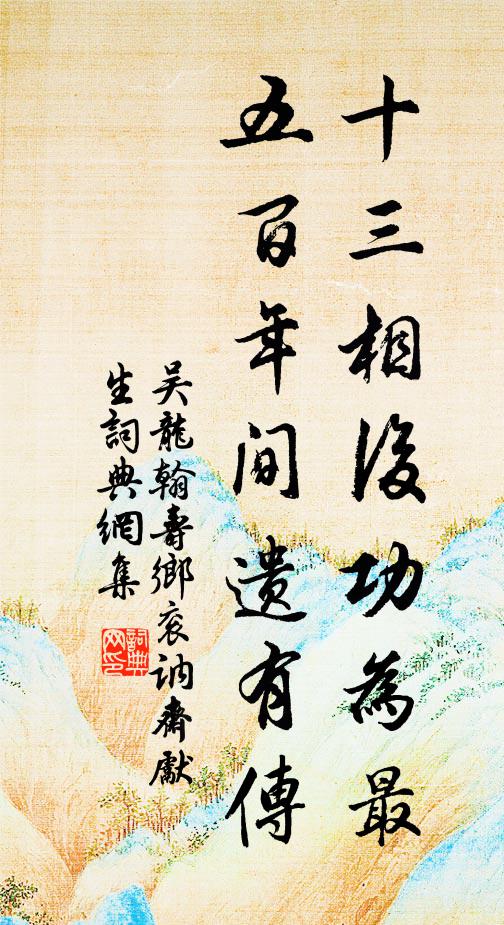 十三相後功為最
五百年間遺有傳
吴龍翰壽鄉衮訥齋獻
生詞典網集
詞典網印